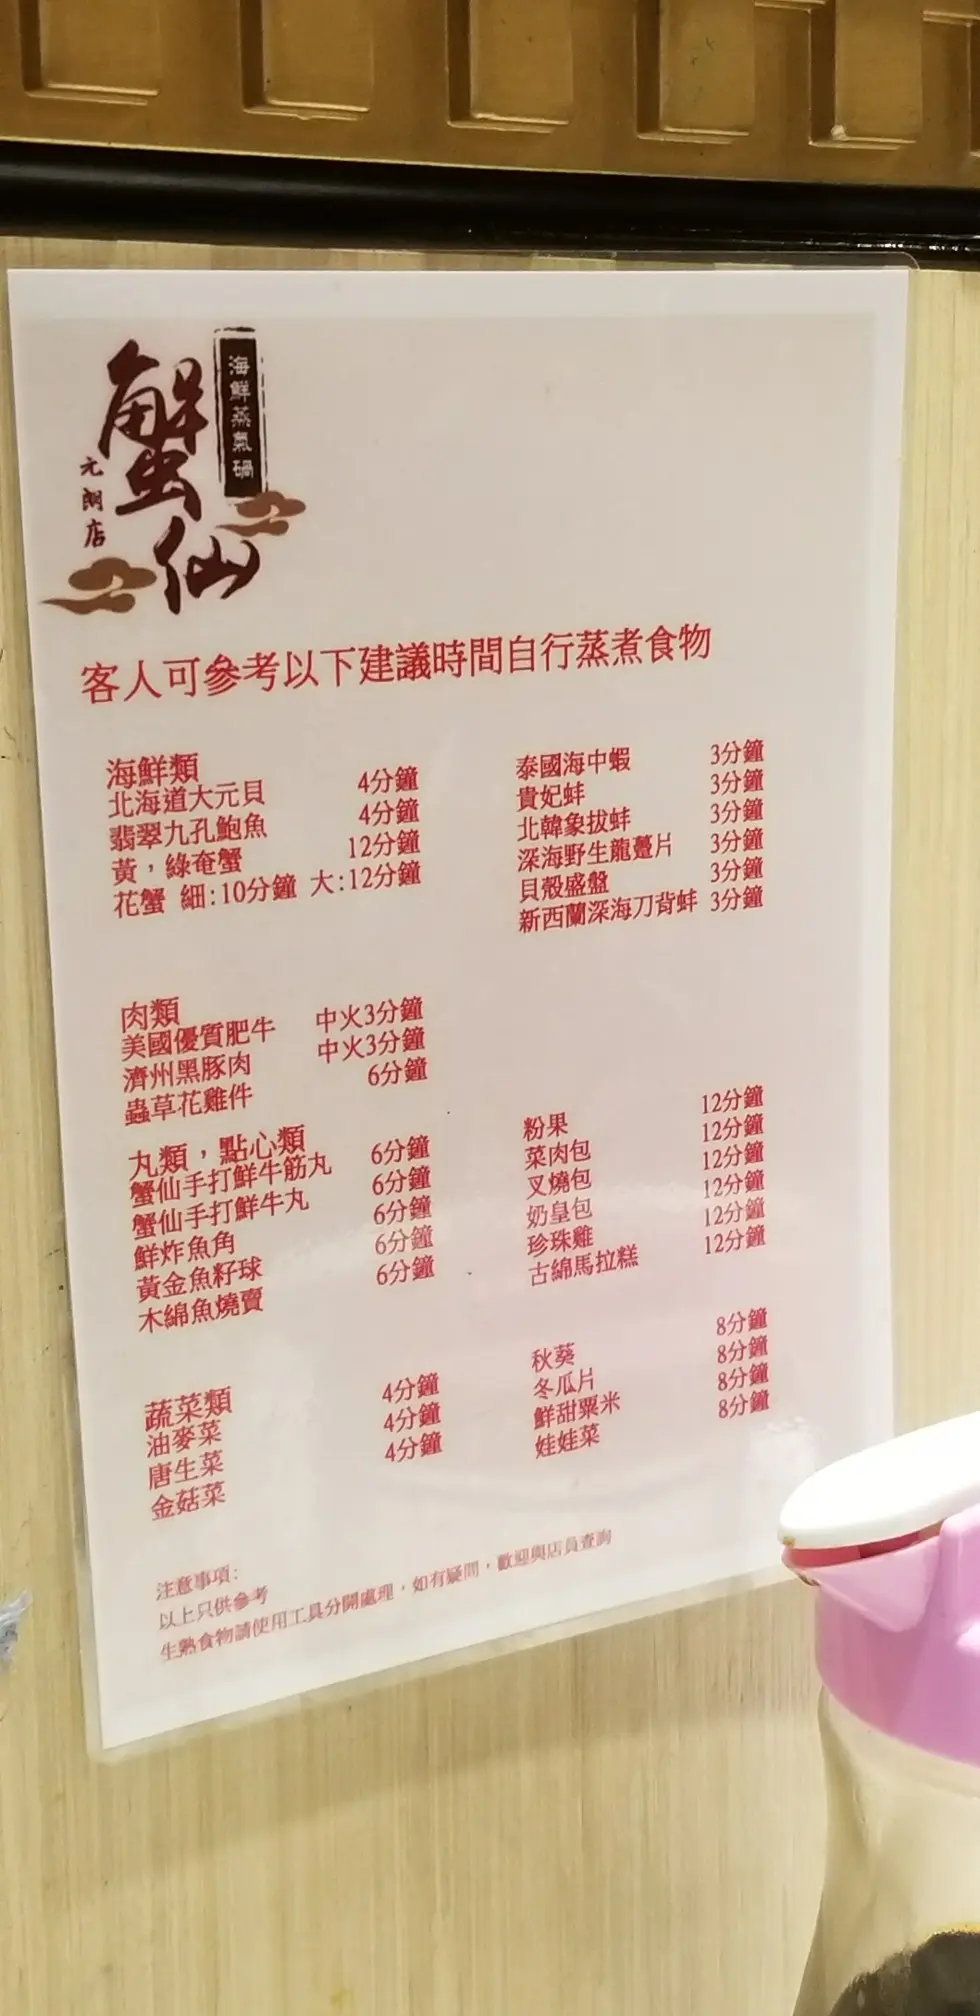 蟹仙
海鮮蒸氣鍋
元朗店
客人可參考以下建議時間自行蒸煮食物
海鮮類
北海道大元貝 4分鐘
翡翠九孔鮑魚 4分鐘
黃，綠奄蟹 12分鐘
花蟹 細:10分鐘 大:12分鐘
泰國海中蝦 3分鐘
貴妃蚌 3分鐘
北韓象拔蚌 3分鐘
深海野生龍躉片 3分鐘
貝殼盛盤 3分鐘
新西蘭深海刀背蚌 3分鐘
肉類
美國優質肥牛 中火3分鐘
濟州黑豚肉 中火3分鐘
蟲草花雞件 6分鐘
丸類，點心類
蟹仙手打鮮牛筋丸 6分鐘
蟹仙手打鮮牛丸 6分鐘
鮮炸魚角 6分鐘
黃金魚籽球 6分鐘
木綿魚燒賣 6分鐘
粉果 12分鐘
菜肉包 12分鐘
叉燒包 12分鐘
奶皇包 12分鐘
珍珠雞 12分鐘
古綿馬拉糕 12分鐘
蔬菜類
油麥菜 4分鐘
唐生菜 4分鐘
金菇菜 4分鐘
秋葵 8分鐘
冬瓜片 8分鐘
鮮甜粟米 8分鐘
娃娃菜 8分鐘
注意事項:
以上只供參考
生熟食物請使用工具分開處理，如有疑問，歡迎與店員查詢